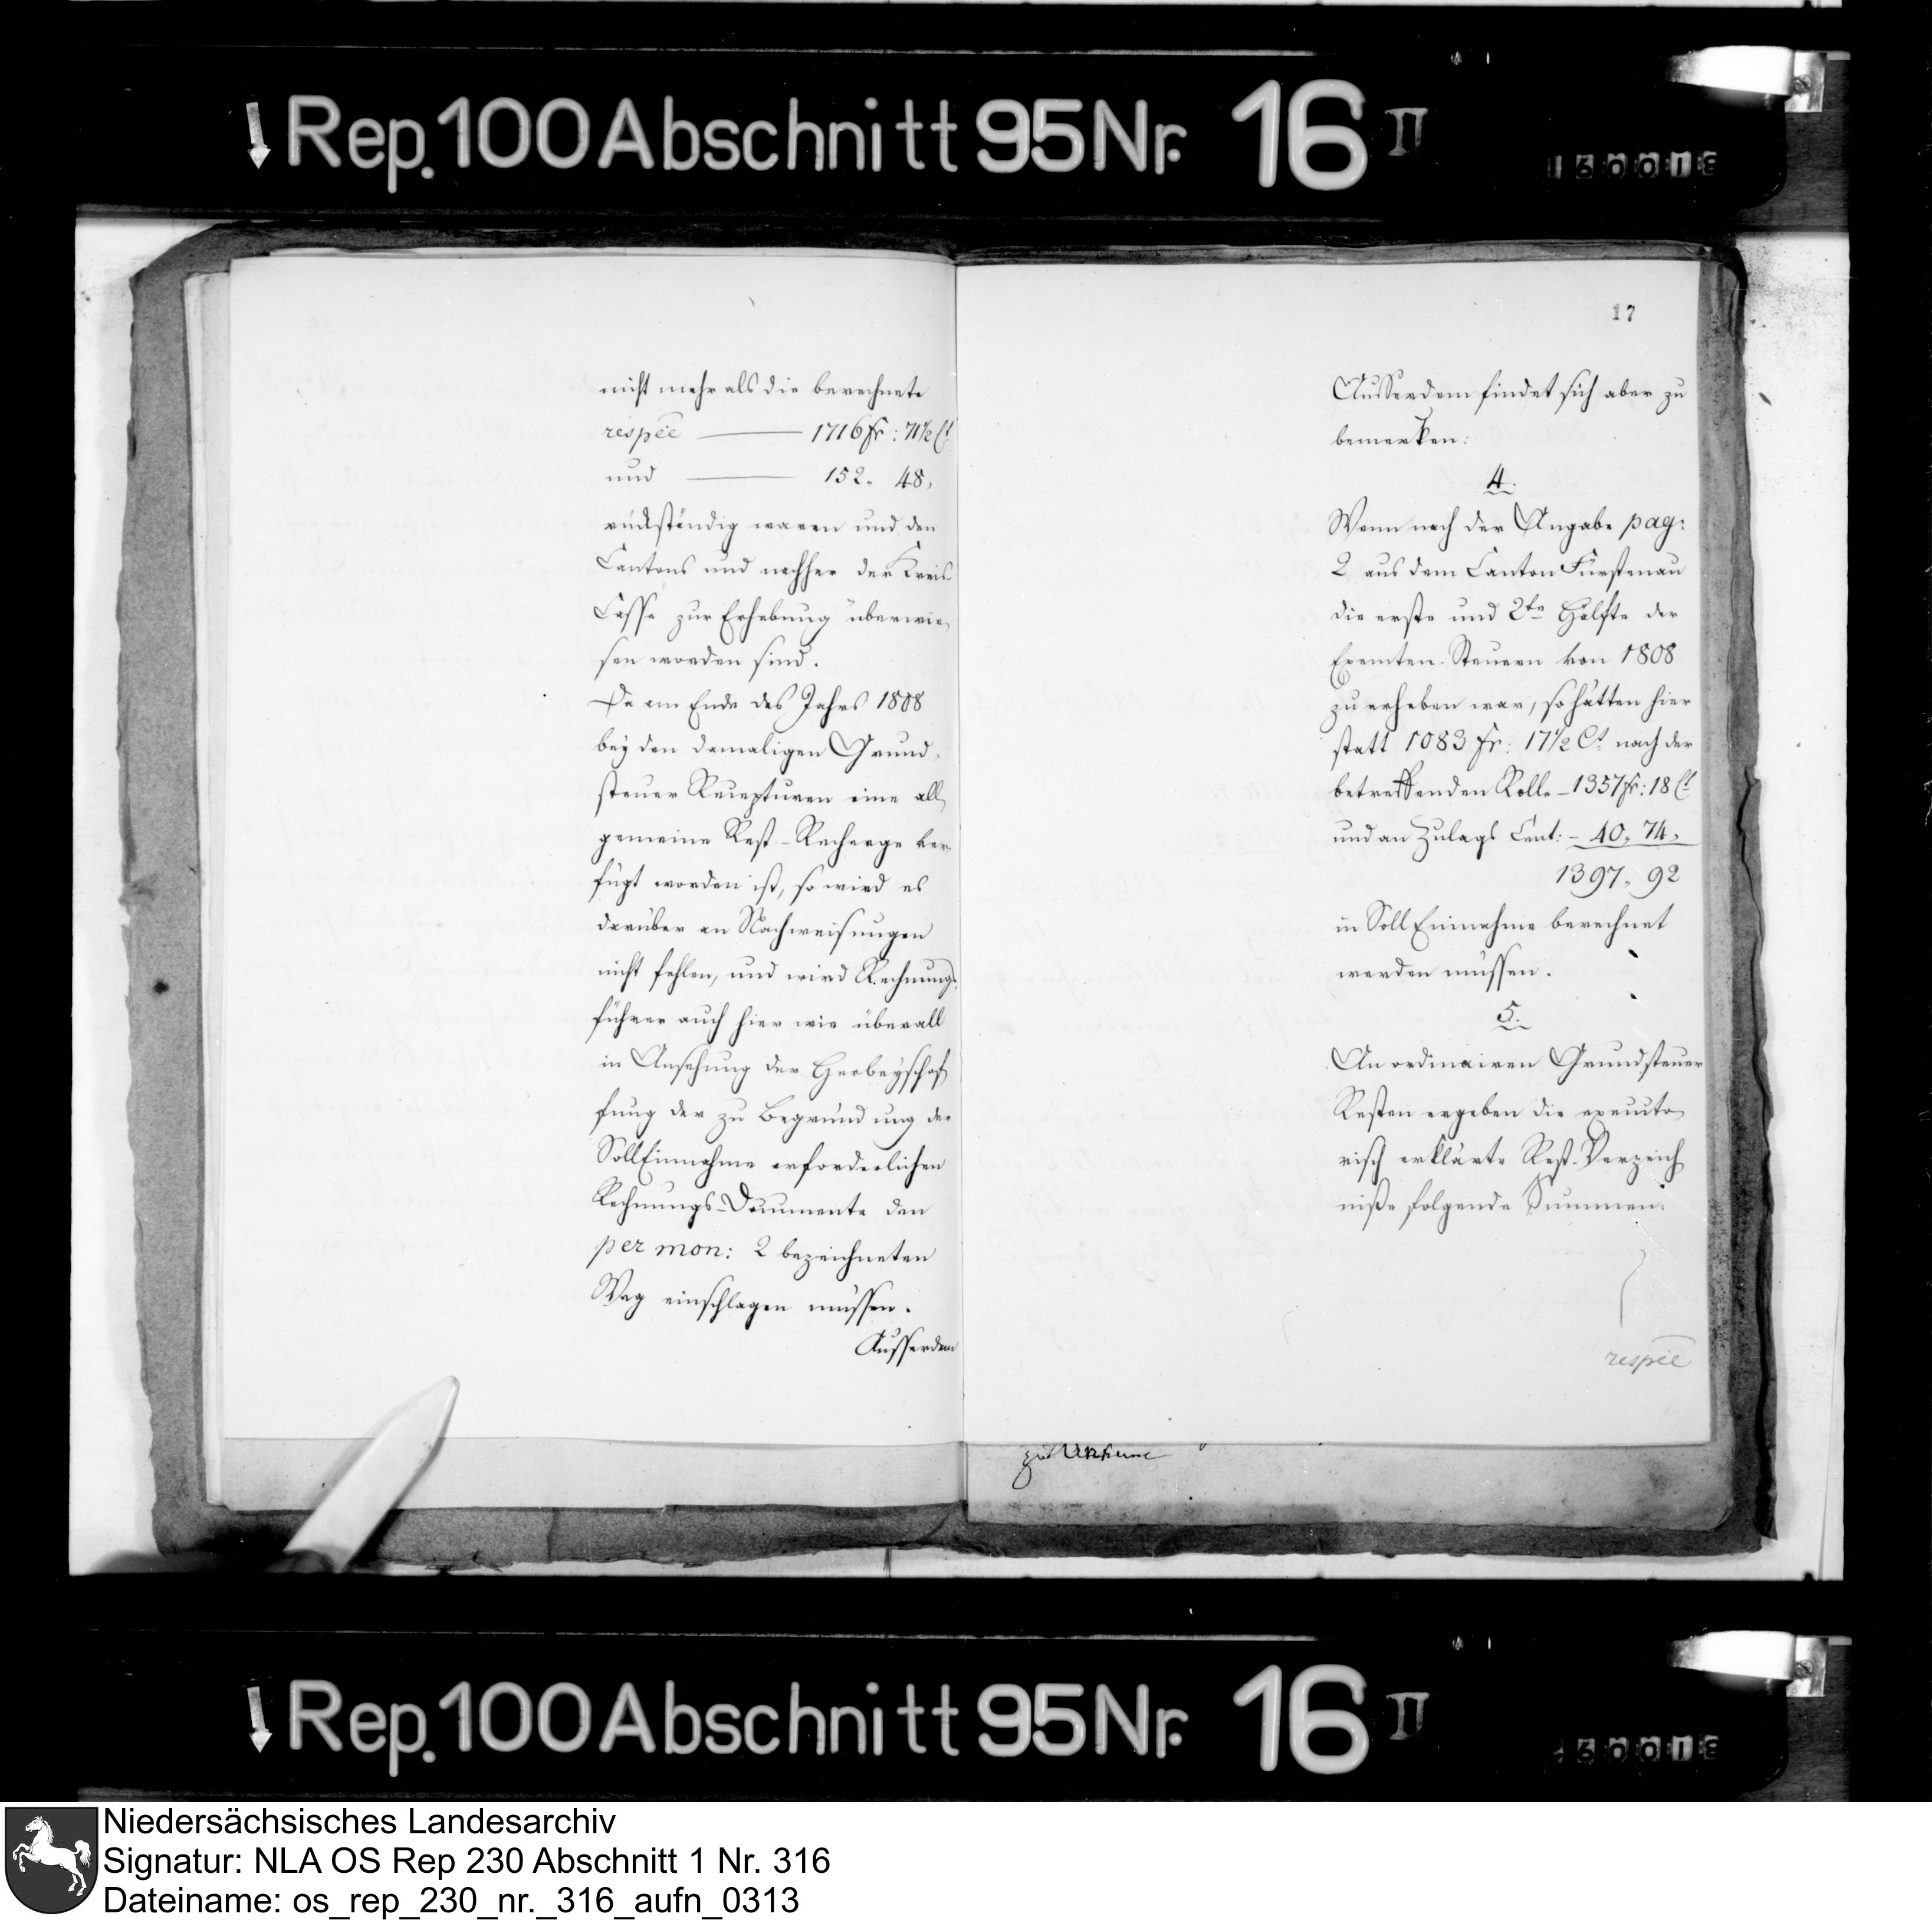 Rep. 100 Abschnitt 95 Nr. 16 II
nicht mehr als die berechnete
respee — 1716 fr: 71½ Ct
und — 152. 48,
rückständig waren und den
Cantons und nachher der Kreis
Casse zur Erhebung überwie,
sen worden sind.
Da am Ende des Jahrs 1808
bey den damaligen Grund,
steuer Recepturen eine all,
gemeine Rest-Recherge ver,
fügt worden ist, so wird es
darüber an Nachweisungen
nicht fehlen, und wird Rechnungs,
führer auch hier wie überall
in Ansehung der Herbeyschaf
fung der zu Begründung der
Soll Einnahme erforderlichen
Rechnungs-Documente den
per mon: 2 bezeichneten
Weg einschlagen müssen.
Ausserdem
17
Ausserdem findet sich aber zu
bemerken:
4.
Wenn nach der Angabe pag:
2 aus dem Canton Fürstenau
die erste und 2te Hälfte der
Exemten-Steuern von 1808
zu erheben war, so hätten hier
statt 1083 fr: 17½ Ct nach der
betreffenden Rolle – 1357 fr: 18 Ct
und an Zulags Cent: – 40, 74,
1397, 92
in Soll Einnahme berechnet
werden müssen.
5.
An ordinairen Grundsteuer
Resten ergeben die executo,
risch erklärte Rest-Verzeich
niße folgende Summen:
respee
Rep. 100 Abschnitt 95 Nr. 16 II
Niedersächsisches Landesarchiv
Signatur: NLA OS Rep 230 Abschnitt 1 Nr. 316
Dateiname: os_rep_230_nr._316_aufn_0313